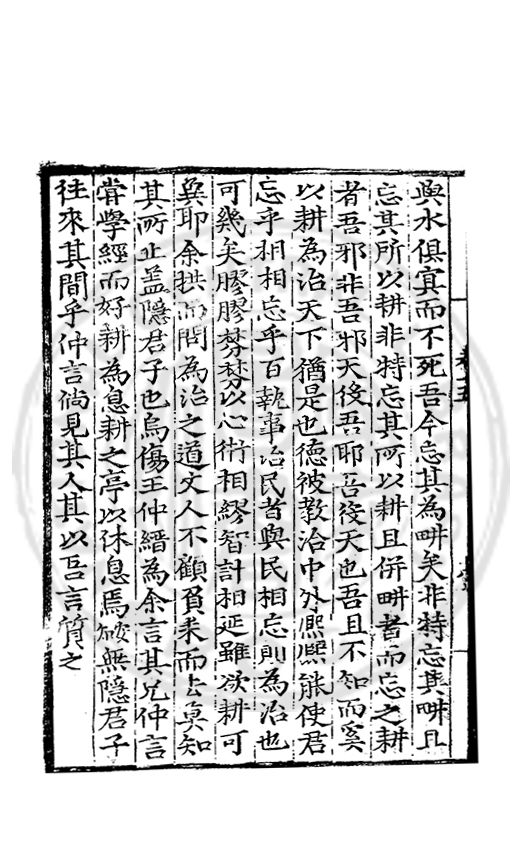 與水俱寘而不死吾今忘其為畊矣非特忘其畊且
忘其所以耕非特忘其所以耕且併畊者而忘之耕
者吾邪非吾邪天役吾耶吾役天也吾且不知而奚
以耕為治天下猶是也德被教洽中外熈熈能使君
忘乎相相忘乎百執事治民者與民相忘則為治也
可幾矣膠膠棼棼以心術相繆智計相延雖欲耕可
㒵耶余拱而問為治之道丈人不顧負耒而去莫知
其所止盖隱君子也烏傷王仲縉為余言其兄仲言
甞學經而好耕為息耕之亭以休息焉